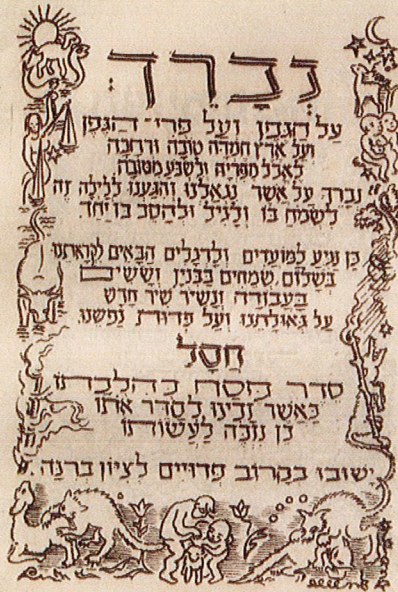 נְבָרֵךְ
על הגפן ועל פרי־הגפן
ועל ארץ חמדה טובה ורחבה
לאכל מפריה ולשבע מטובה
נברך על אשר נגאלנו והגענו ללילה זה
לשמח בו ולגיל ולהסב בו יחד.
כן נגיע למועדים ולרגלים הבאים לקראתנו
בשלום, שמחים בבנין וששים
בעבודה ונשיר שיר חדש
על גאולתנו ועל פדות נפשנו.
חסל
סדר פסח כהלכתו
כאשר זכינו לסדר אתו
כן נזכה לעשותו
ישובו בקרוב פדויים לציון ברנה.